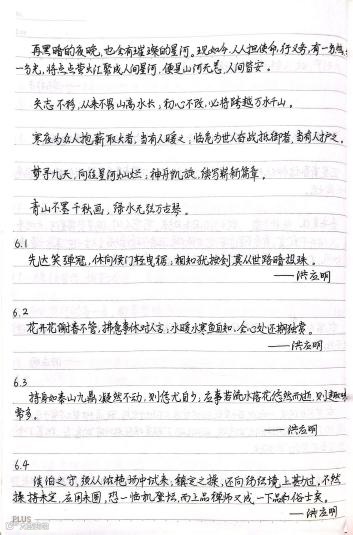 再黑暗的夜晚,也会有璀璨的星河。现如今,人人担使命,行义务,有一分热
一分光,将点点萤火汇聚成人间星河,便是山河无恙,人间皆安。
矢志不移,从来不畏山高水长;初心不改,必将跨越万水千山。
寒夜为众人抱薪取火者,当有人暖之;临危为世人奋战抵御者,当有人护之。
梦寻九天,向往星河灿烂;神舟凯旋,续写崭新篇章。
青山不墨千秋画,绿水无弦万古琴。
6.1
先达笑弹冠,休向侯门轻曳裾;相知犹按剑,莫从世路暗投珠。
——洪应明
6.2
花开花谢春不管,拂意事休对人言;水暖水寒鱼自知,会心处还期独赏。
——洪应明
6.3
持身如泰山九鼎凝然不动,则愆尤自少;应事若流水落花悠然而逝,则趣味
常多。
——洪应明
6.4
淡泊之守,须从浓艳场中试来;镇定之操,还向纷纭境上勘过,不然
操持未定,应用未圆,恐一临机登坛,而上品禅师又成一下品俗士矣。
——洪应明
PLUS